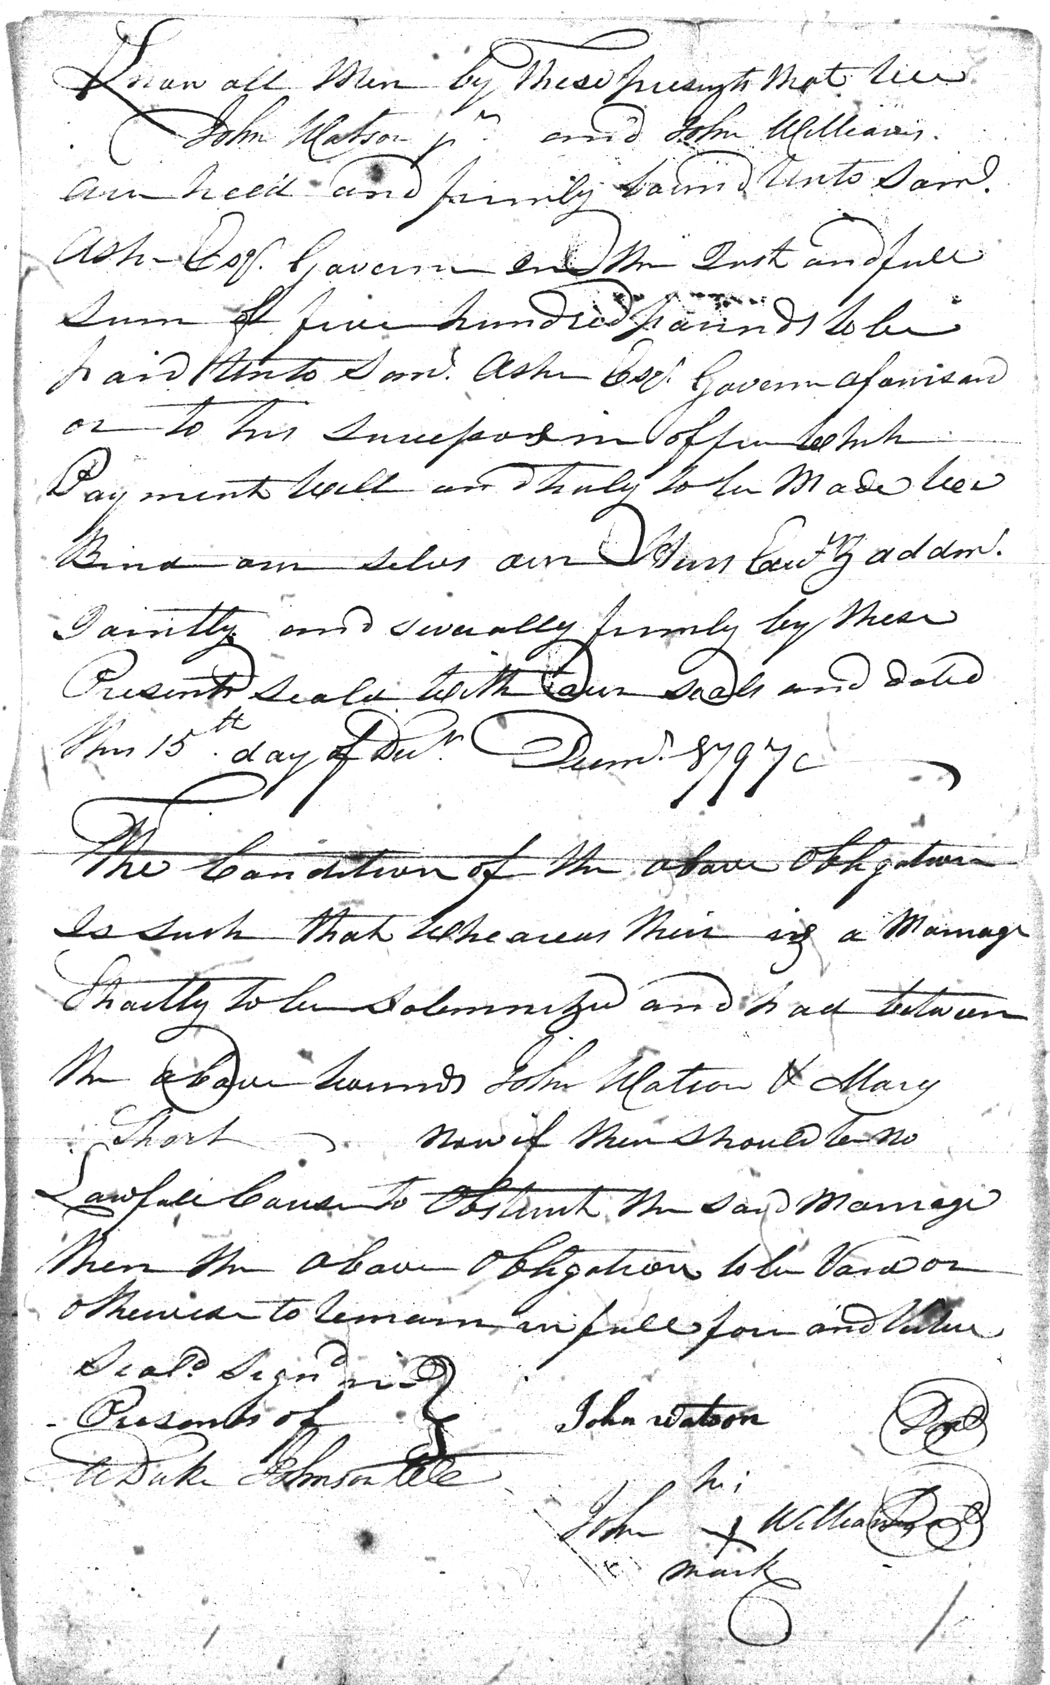 Know all Men by These presents that wee
John Watson jr and John Williams.
are heed and firmly bound Unto Samd.
Ashe Esqr. Governer and the Just and full
Sum of five hundred pounds to be
paid Unto Samd. Ashe Esqr. Governer afforisaid
or to his Successors in office which
Payment Well and truly to be Made wee
Bind our selves our Heirs Exers & addmr.
Jointly and severally firmly by these
Presents seald with our seals and dated
this 15th. day of Decr. 1797
The Condition of the above Obligation
Is such that Wheareas their is a Marriage
Shortly to be solemnized and had between
the above bounds John Watson & Mary
Short now if their should be no
Lawfull Cause to Obstruct the said Marriage
then the above Obligation to be Void or
otherwise to remain in full force and Virtue
Seald Signd in
Presents of
Duke Johnson
John Watson Seal
his
John x Williams Seal
mark